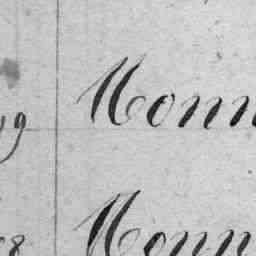 19 Monn
8 Monn